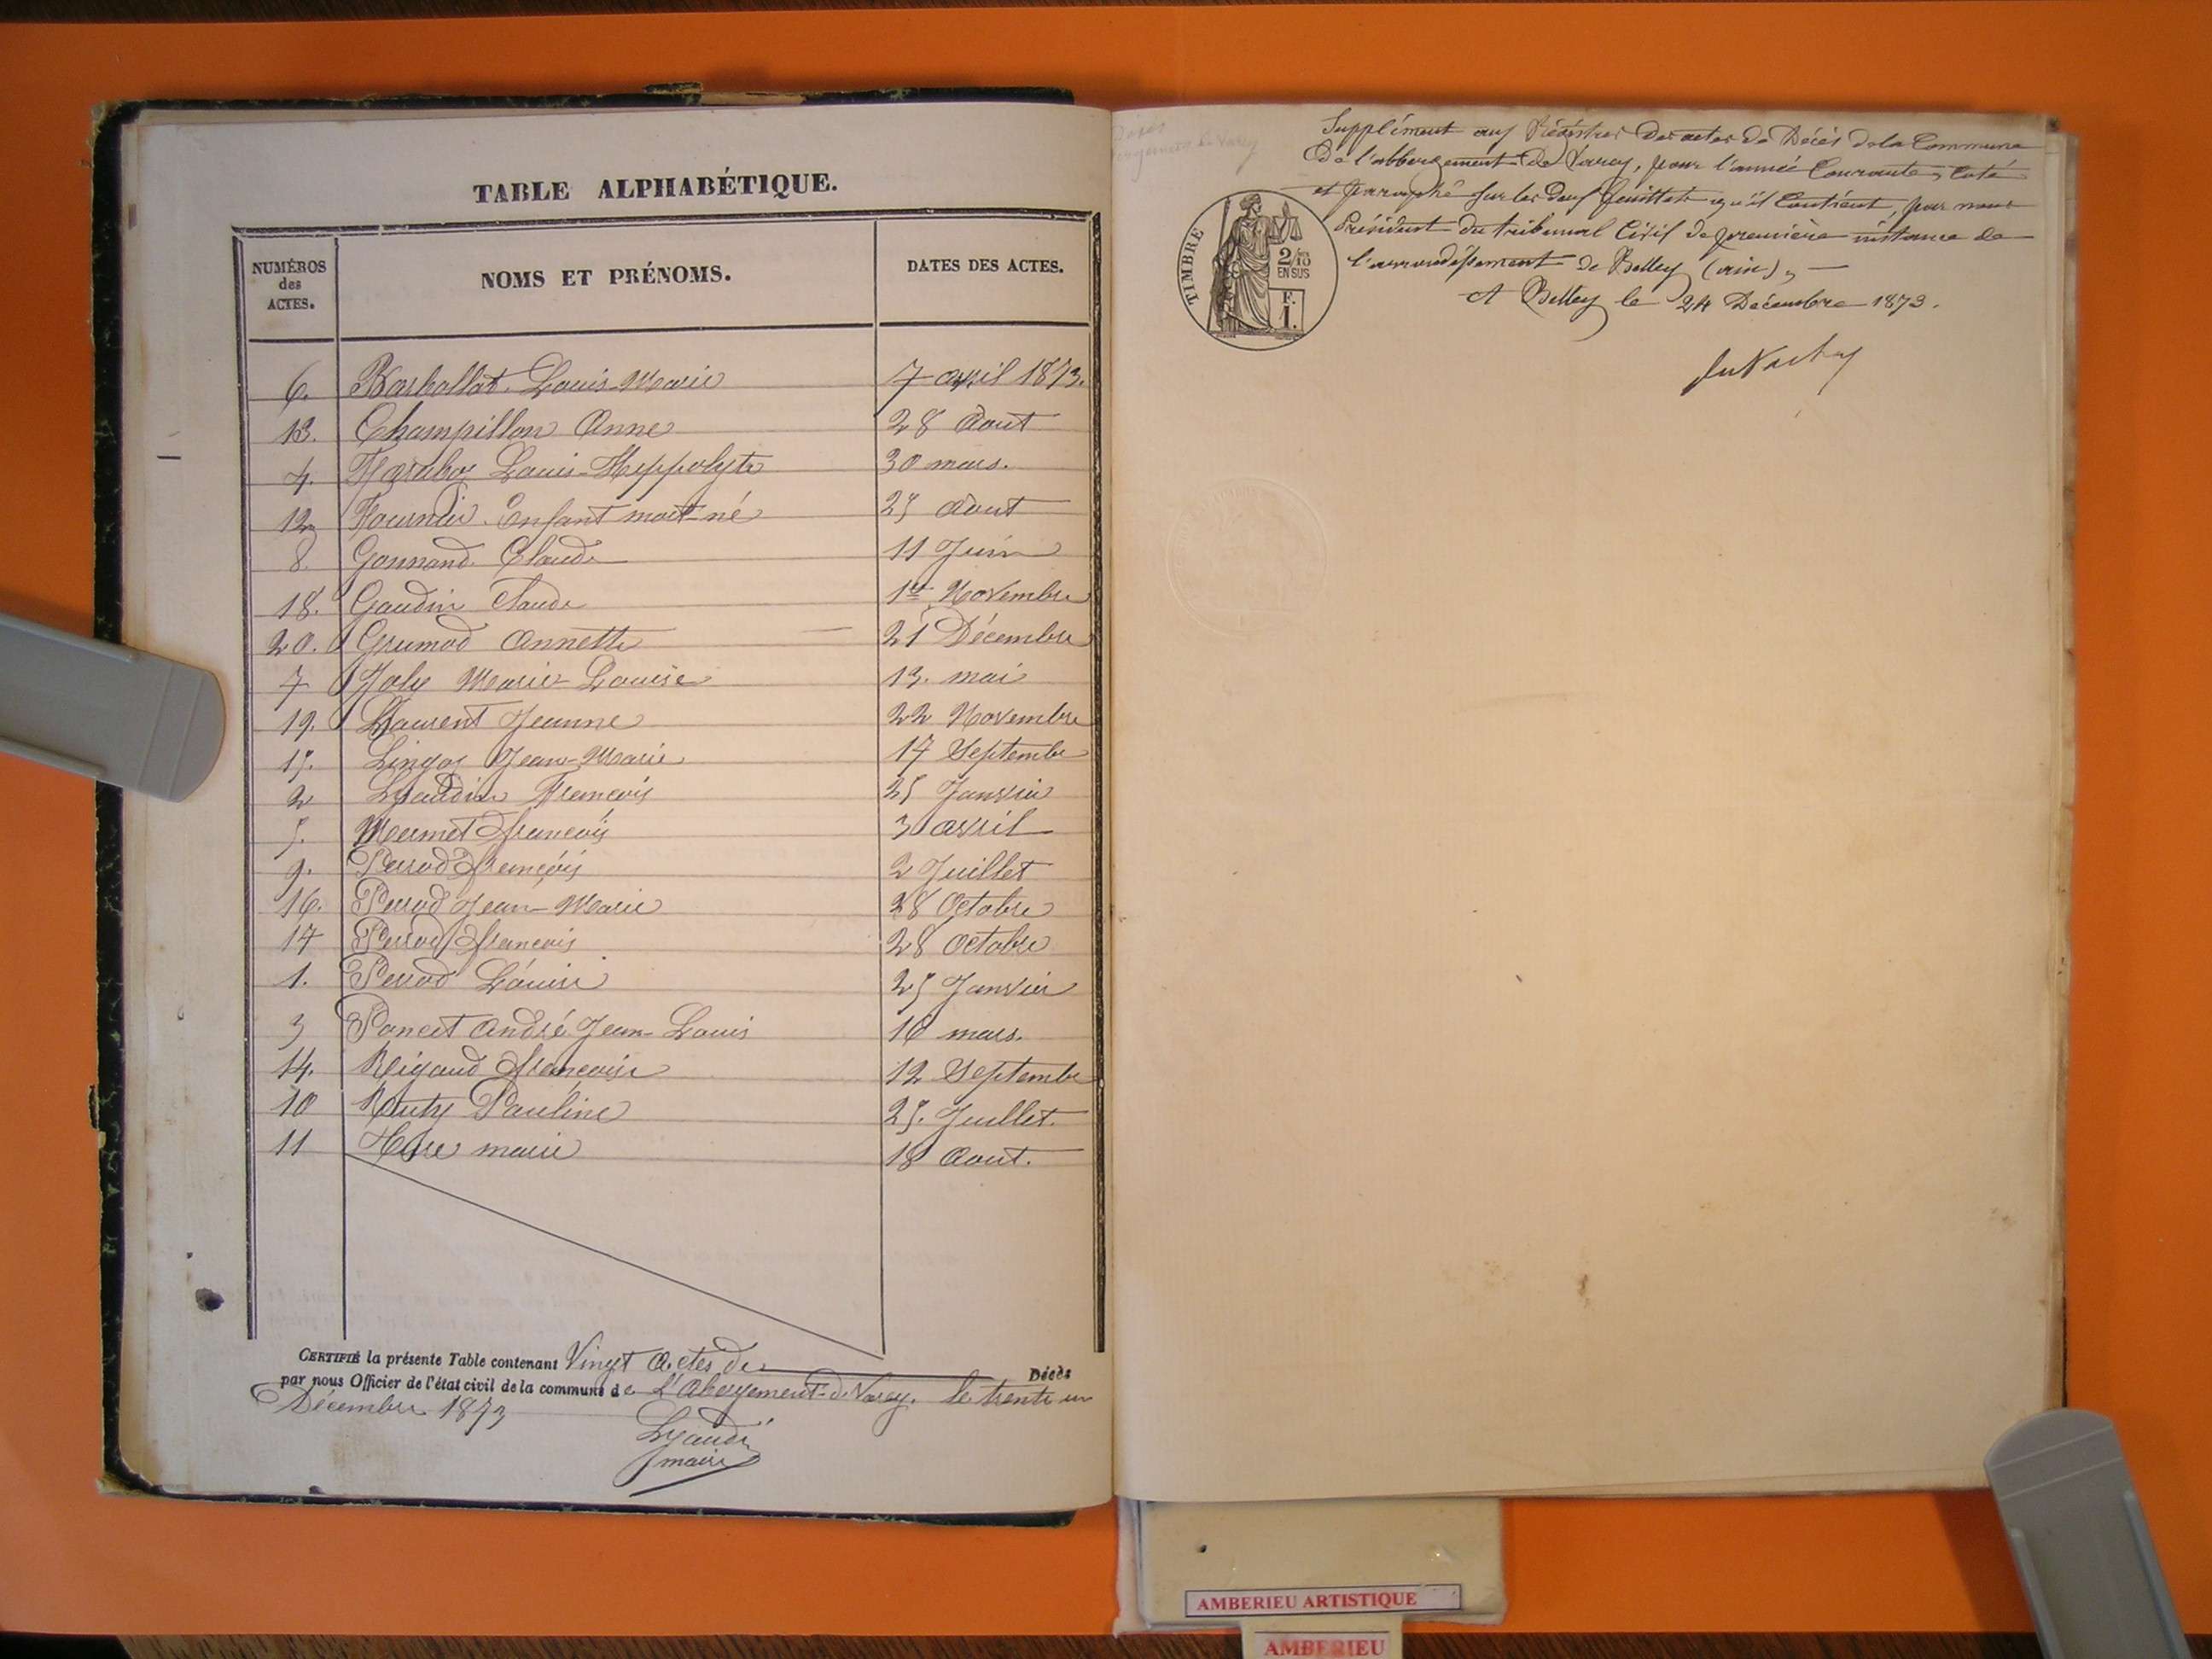 TABLE ALPHABÉTIQUE.
NUMÉROS des ACTES. NOMS ET PRÉNOMS. DATES DES ACTES.
6. Barballat Louis-Marie 7 avril 1873.
13. Champillon Anne 28 Aout
4. Louis-Hyppolyte 30 mars.
12 Fournier Enfant mort-né 25 Aout
8. Gonnand Claude 11 Juin
18. Gaudin Claude 1er Novembre
20. Grumod Annette 21 Décembre
7 Joly Marie-Louise 13. mai
19. Laurent Jeanne 22 Novembre
15. Jean-Marie 17 Septembre
2 Lyaudin François 25 Janvier
5. Mermet François 3 avril
9. Perrod François 2 Juillet
16. Perrod Jean-Marie 28 Octobre
17 Perrod François 28 Octobre
1. Perrod Louise 25 Janvier
3 Poncet André Jean-Louis 16 mars.
14. Rigaud Françoise 12 Septembre
10 Routy Pauline 25. Juillet.
11 marie 18 Aout.
CERTIFIÉ la présente Table contenant Vingt Actes de Décès
par nous Officier de l'état civil de la commune de L'Abergement-de-Varey. le trente un
Décembre 1873
maire
Supplément aux Régistres des actes de Décès de la Commune
de l'abbergement de Varey, pour l'année Courante, Coté
et paraphé sur les deux feuillets qu'il Contient, par nous
Président du tribunal Civil de première instance de
l'arrondissement de Belley (ain),
A Belley le 24 Décembre 1873.
TIMBRE
2/10 EN SUS
F. 1.
AMBERIEU ARTISTIQUE
AMBERIEU